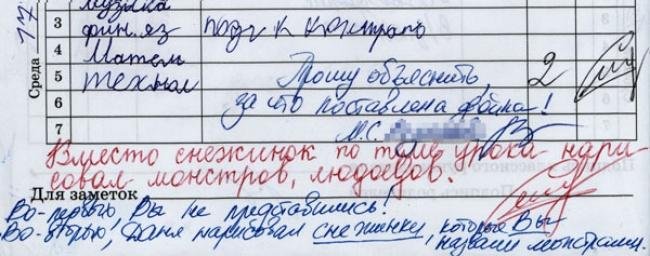 Среда 17
Музыка
3 фин. яз подг к контроль
4 Матем
5 технол 2
Прошу объяснить,
6 за что поставлена двойка!
7 М.С.
Вместо снежинок по теме урока нари-
совал монстров, людоедов.
Для заметок
Во-первых, Вы не представились!
Во-вторых, Даня нарисовал снежинки, которые Вы
назвали монстрами.